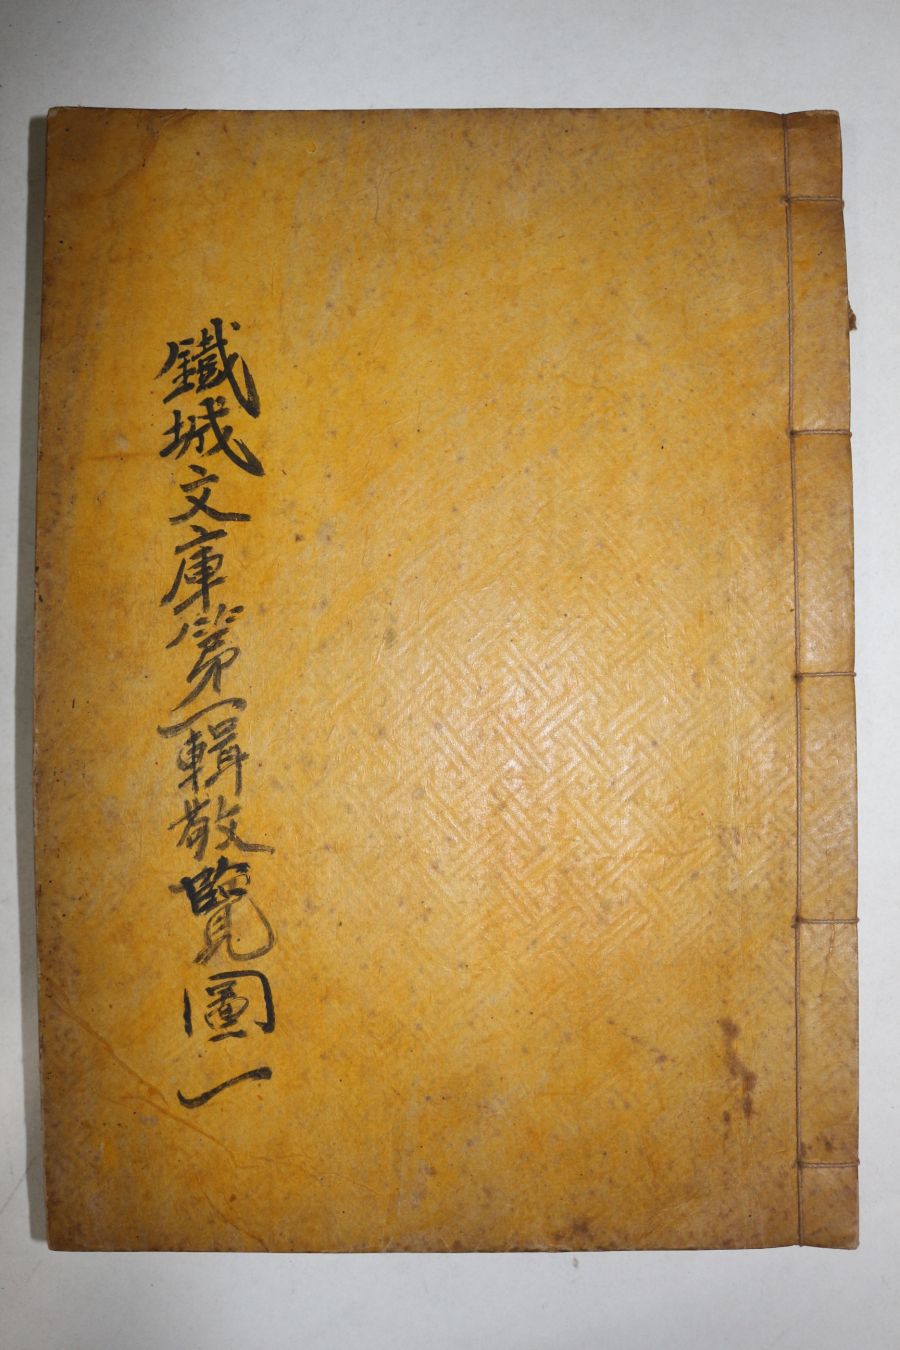 鐵城文庫第一輯敬覽圖一